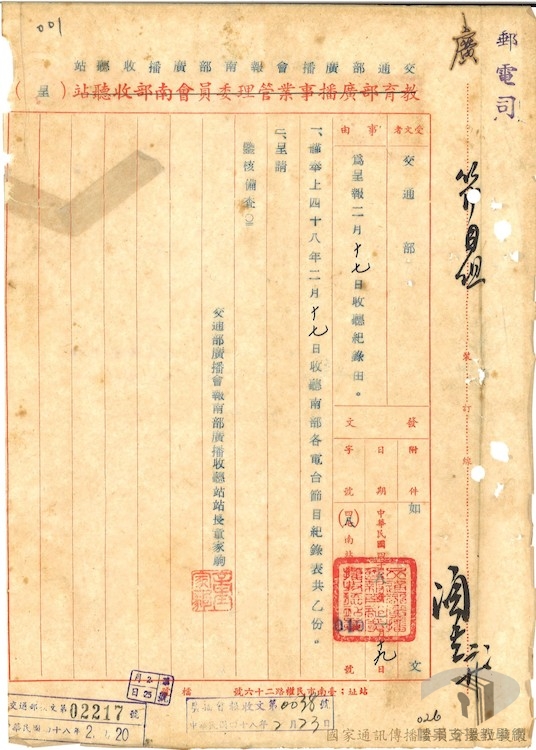 001
廣
郵電司
節目組
裝
訂
線
交通部廣播會報南部廣播收聽站
教育部廣播事業管理委員會南部收聽站(呈)
受文者
交通部
事由
為呈報二月十七日收聽紀錄由。
發文
附件
如文
日期
中華民國四
九日
字號
南
010
號
一、謹奉上四十八年二月十七日收聽南部各電台節目紀錄表共乙份。
二、呈請
鑒核備查。
交通部廣播會報南部廣播收聽站站長童家駒
站址:臺南市民權路二十六號
檔
月2
日25
號
交通部收文第02217號
中華民國四十八年2.20
收文第0038號
中華民國四十八年2月23日
026
國家通訊傳播